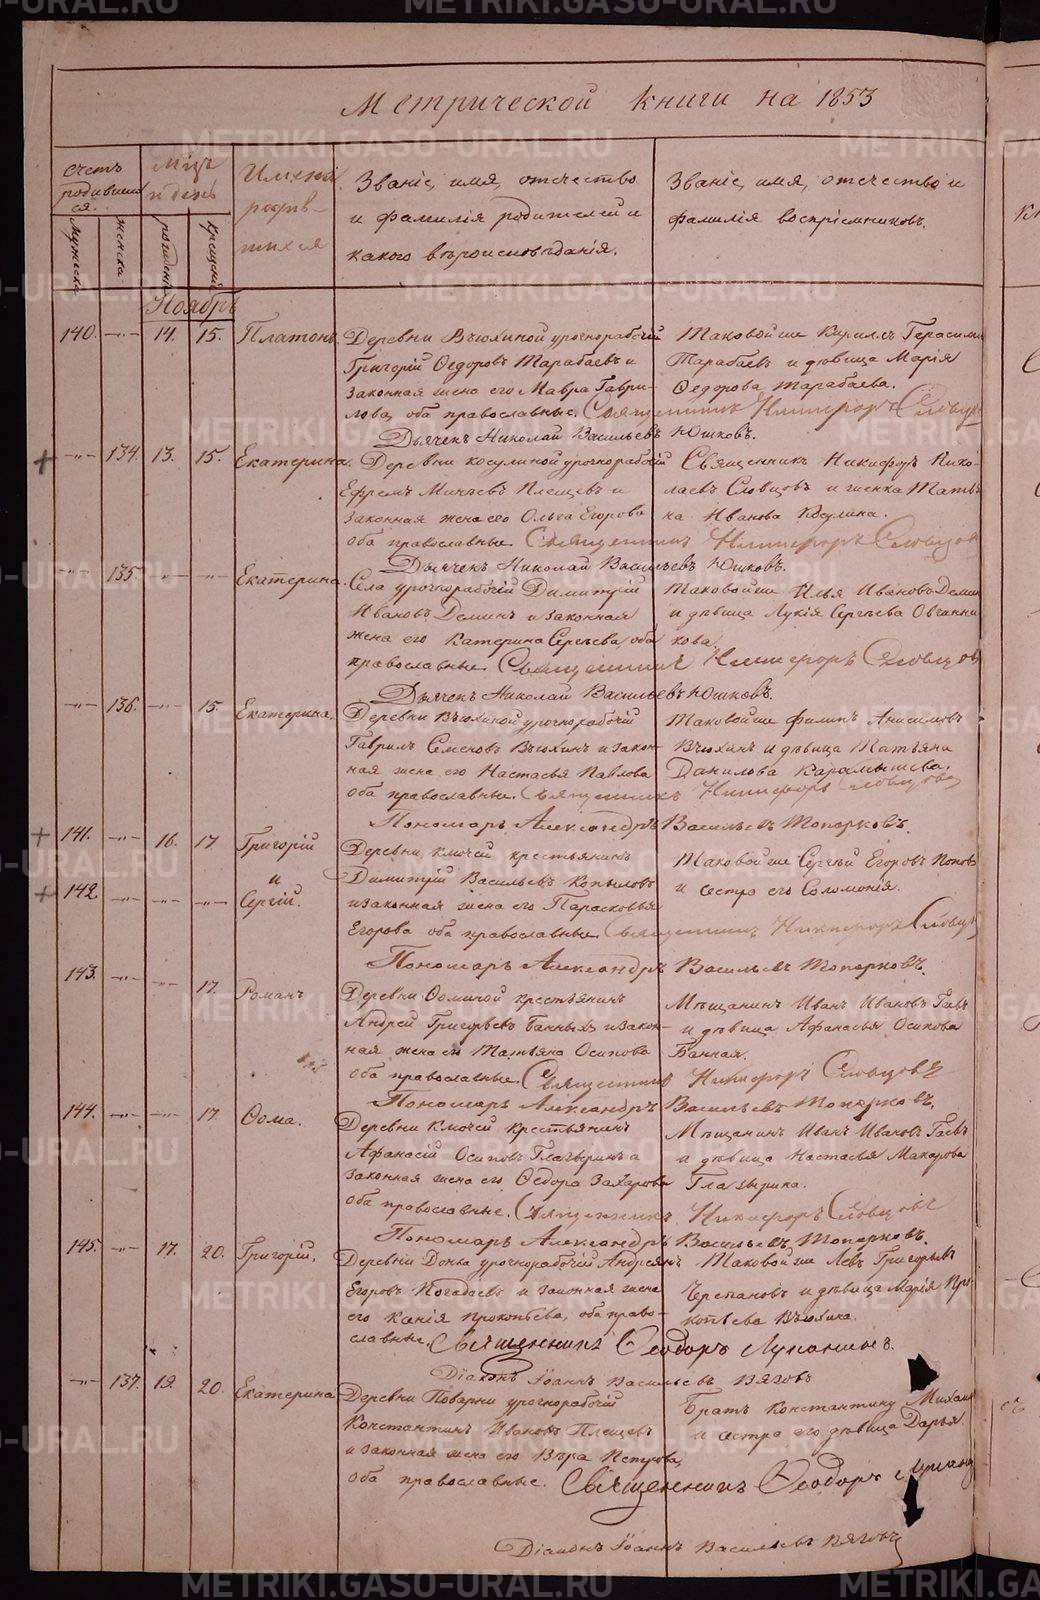 Метрической книги на 1853
Счетъ родившихся.
Мужеска
женска
М͠цъ и день
рожденія
крещенія
Имена родившихся
Званіе, имя, отчество и фамилія родителей и какого вѣроисповѣданія.
Званіе, имя, отчество и фамилія воспріемниковъ.
Ноябрь
140. 14. 15. Платонъ. Деревни Вьюхиной урочнорабочій Таковой же Кириллъ Герасимо
Григорій Ѳедоровъ Тарабаевъ и Тарабаевъ и дѣвица Марія
законная жена его Мавра Гаври- Ѳедорова Тарабаева.
лова, оба православные. Священникъ Никифоръ Словцовъ
Дьячекъ Николай Васильевъ Юшковъ.
134. 13. 15. Екатерина. Деревни Косулиной урочнорабочій Священникъ Никифоръ Нико-
Ефремъ Плещевъ и лаевъ Словцовъ и женка Татья
законная жена его Ольга Егорова на Иванова Косулина.
оба православные. Священникъ Никифоръ Словцов
Дьячекъ Николай Васильевъ Юшковъ.
135. Екатерина. Села урочнорабочій Димитрій Таковой же Илья Ивановъ Демин
Ивановъ Деминъ и законная и дѣвица Лукія Сергѣева Овчинни
жена его Катерина Сергѣева, оба кова,
православные. Священникъ Никифоръ Словцов
Дьячекъ Николай Васильевъ Юшковъ.
136. 15. Екатерина. Деревни Вьюхиной урочнорабочій Таковой же Филипъ Анисимовъ
Гаврилъ Семеновъ Вьюхинъ и закон- Вьюхинъ и дѣвица Татьяна
ная жена его Настасья Павлова Данилова Карамышева.
оба православные. Священникъ Никифоръ Словцовъ
Пономарь Александръ Васильевъ Топорковъ.
141. 16. 17 Григорій Деревни Ключей крестьянинъ Таковой же Сергѣй Егоровъ Поповъ
и
142 Сергій. Димитрій Васильевъ Копыловъ и сестра его Соломонія.
и законная жена его Парасковья
Егорова оба православные. Священникъ Никифоръ Словц
Пономарь Александръ Васильевъ Топорковъ.
143. 17. Романъ Деревни Ѳоминой крестьянинъ Мѣщанинъ Иванъ Ивановъ Гаевъ
Андрей Григорьевъ Банныхъ и закон- и дѣвица Афанасья Осипова
ная жена его Татьяна Осипова Банная.
оба православные. Священникъ Никифоръ Словцовъ
Пономарь Александръ Васильевъ Топорковъ.
144. 17. Ѳома. Деревни Ключей крестьянинъ Мѣщанинъ Иванъ Ивановъ Гаевъ
Афанасій Осиповъ Глазыринъ а и дѣвица Настасья Макарова
законная жена его Ѳедора Захарова Глазырина.
оба православные. Священникъ Никифоръ Словцовъ
Пономарь Александръ Васильевъ Топорковъ.
145. 17. 20. Григорій. Деревни урочнорабочій Андреянъ Таковой же Левъ Григорьевъ
Егоровъ Погадаевъ и законная жена Черепановъ и дѣвица Марія Про
его Ксенія Прокопьева, оба право- копьева Вьюхина.
славные. Священникъ Ѳеодоръ
Діаконъ Іоаннъ Васильевъ Вяговъ
137. 19. 20. Екатерина Деревни Поварни урочнорабочій Братъ Константину Михаил
Константинъ Ивановъ Плещевъ и сестра его дѣвица Дарья
и законная жена его Вѣра Петрова,
оба православные. Священникъ Ѳеодоръ
Діаконъ Іоаннъ Васильевъ Вяговъ
METRIKI.GASO-URAL.RU